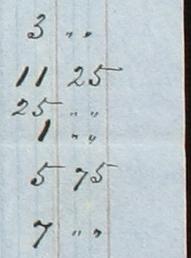 3 " "
11 25
25 " "
1 " "
5 75
7 " "